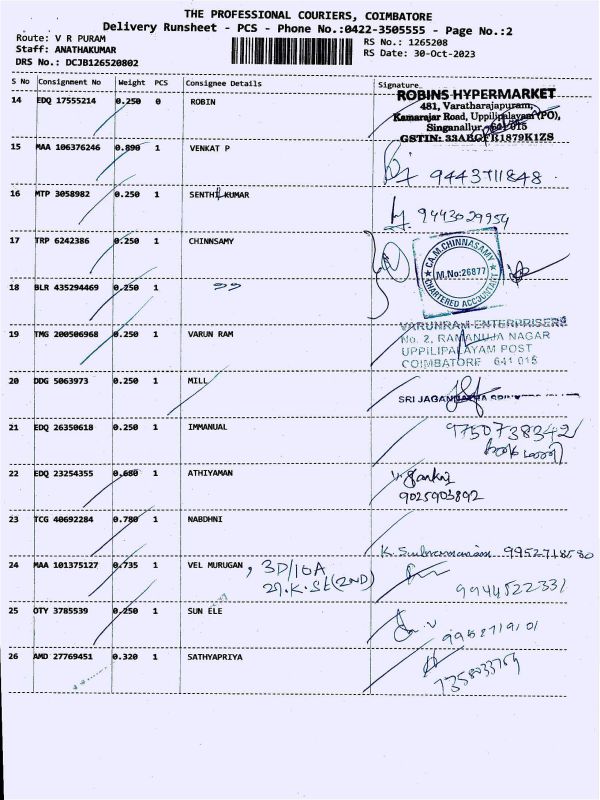 THE PROFESSIONAL COURIERS, COIMBATORE
Delivery Runsheet - PCS - Phone No.:0422-3505555 - Page No.:2
Route: V R PURAM
Staff: ANATHAKUMAR
DRS No.: DCJB126520802
RS No.: 1265208
RS Date: 30-Oct-2023
S No Consignment No Weight PCS Consignee Details Signature
14 EDQ 17555214 0.250 0 ROBIN
ROBINS HYPERMARKET
481, Varatharajapuram,
Kamarajar Road, Uppilipalayam (PO),
Singanallur, 641 015
GSTIN: 33ABGFR1879K1ZS
15 MAA 106376246 0.890 1 VENKAT P
9443711848
16 MTP 3058982 0.250 1 SENTHILKUMAR
9443029954
17 TRP 6242386 0.250 1 CHINNSAMY
CA.M.CHINNASAMY
M.No:26877
CHARTERED ACCOUNTANT
18 BLR 435294469 0.250 1 "
19 TMG 200506968 0.250 1 VARUN RAM
VARUNRAM ENTERPRISERS
No. 2, RAMANUJA NAGAR
UPPILIPALAYAM POST
COIMBATORE 641 015
20 DDG 5063973 0.250 1 MILL
SRI JAGANNATHA
21 EDQ 26350618 0.250 1 IMMANUAL
9750738342
22 EDQ 23254355 0.680 1 ATHIYAMAN
9025903892
23 TCG 40692284 0.780 1 NABDHNI
K. Subramaniam 9952718580
24 MAA 101375127 0.735 1 VEL MURUGAN , 3D/10A
9944522331
25 OTY 3785539 0.250 1 SUN ELE
9952719101
26 AMD 27769451 0.320 1 SATHYAPRIYA
7358033769